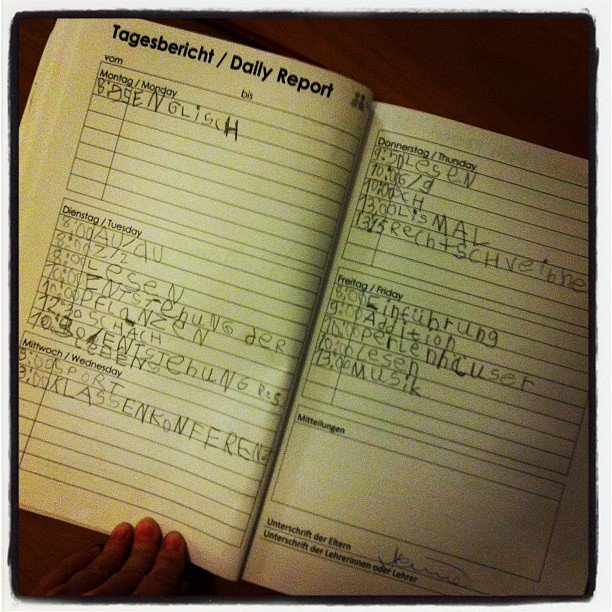 Tagesbericht / Daily Report
vom bis
Montag / Monday
ENGLISCH
Dienstag / Tuesday
8:00 AU/AU
8:00 2/2
8:00 LESEN
10:00 ENTSTEHUNG DER
PFLANZEN
12:30 SCHACH
ENTSTEHUNG DES
LEBENS
Mittwoch / Wednesday
8:00 SPORT
KLASSENKONFERENZ
Donnerstag / Thursday
LESEN
13:00 LISMAL
RECHTSCHVEIBHE
Freitag / Friday
8:00 Einführung
9:00 Addition
Perlenhäuser
Lesen
13:00 MUSIK
Mitteilungen
Unterschrift der Eltern
Unterschrift der Lehrerinnen oder Lehrer